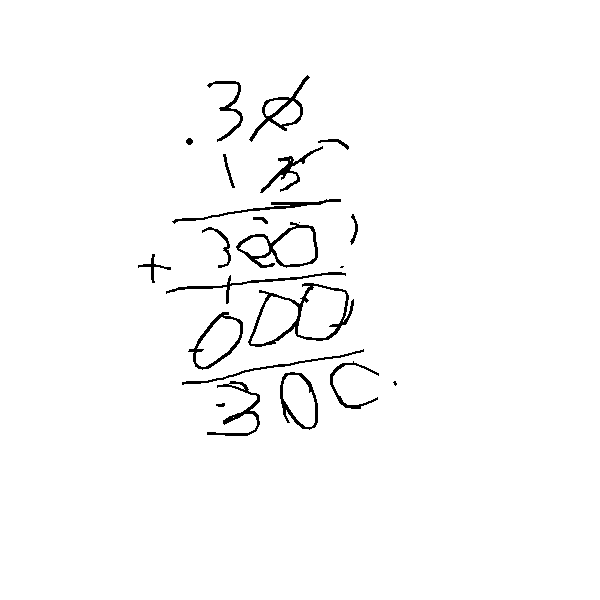 .30
1
+ 300
000
300.